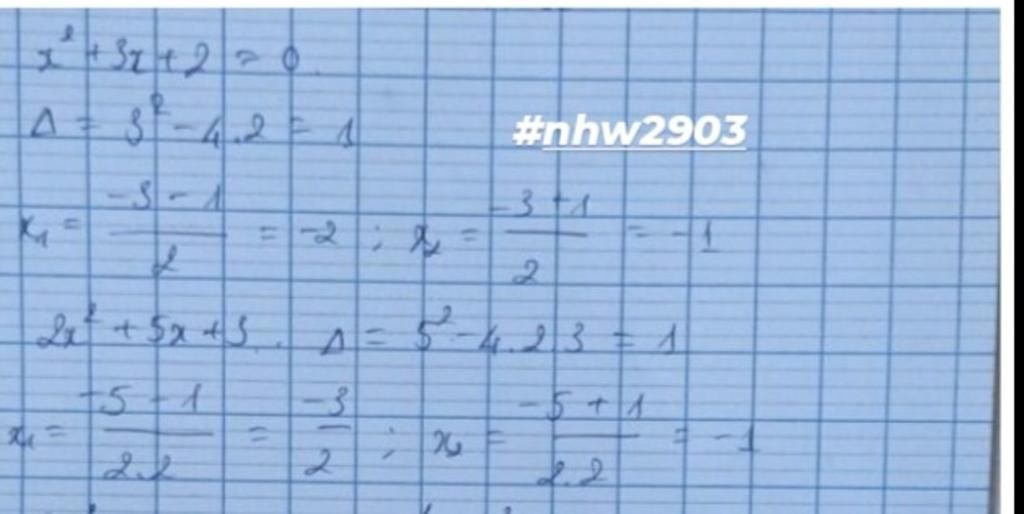 x² + 3x + 2 = 0
Δ = 3² - 4.2 = 1
#nhw2903
x₁ = (-3 - 1)/2 = -2 ; x₂ = (-3 + 1)/2 = -1
2x² + 5x + 3 . Δ = 5² - 4.2.3 = 1
x₁ = (-5 - 1)/2.2 = -3/2 ; x₂ = (-5 + 1)/2.2 = -1